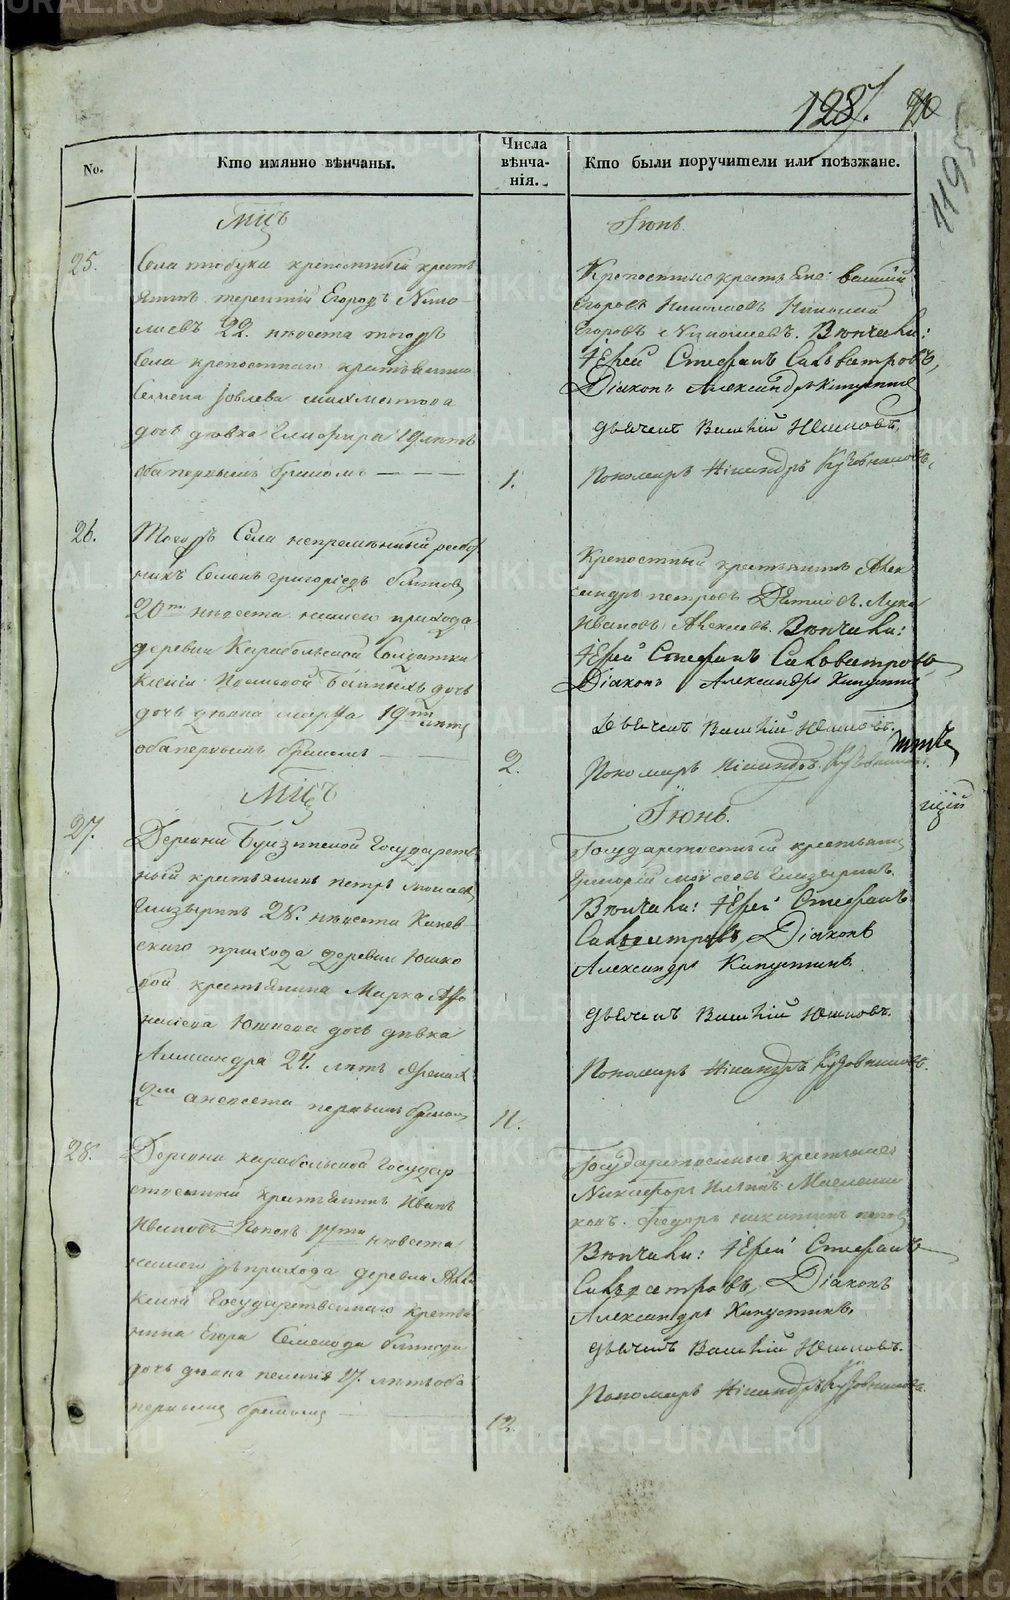 128. 20
119
No.
Кто имянно вѣнчаны.
Числа
вѣнча-
нія.
Кто были поручители или поѣзжане.
Мцъ
Іюнь.
25.
Села крепостный кресть
янинъ терентій Егоровъ Нико
лаевъ 22. невѣста тогожъ
Села крепостнаго крестьянина
Семена Іовлева
дочь дѣвка Глафира 19 лѣтъ
оба первымъ бракомъ
1.
Крепостные крестьяне: Василій
Егоровъ Николаевъ Николай
Егоровъ Николаевъ. Вѣнчали:
Іерей Стефанъ Сильвестровъ,
Діаконъ Александръ Капустинъ
дьячекъ Василій Юшковъ.
Пономарь Никандръ Кузовниковъ.
26.
Тогожъ Села непремѣнный работ
никъ Семенъ григорьевъ
20ти невѣста нашего прихода
деревни Карабольской Солдатки
дочь
дочь дѣвка марфа 19ти лѣтъ
оба первымъ бракомъ
2.
Крепостный крестьянинъ Алек
сандръ петровъ Лука
Ивановъ Алексѣевъ. Вѣнчали:
Іерей Стефанъ Сильвестровъ
Діаконъ Александръ Капустинъ
Дьячекъ Василій Юшковъ.
Пономарь Никандръ Кузовниковъ.
Мцъ
Іюнь.
27.
Деревни Государств
ный крестьянинъ петръ моисеевъ
Глазыринъ 28. невѣста
скаго прихода деревни Юшко
вой крестьянина Марка Афо
насіева Юшкова дочь дѣвка
Александра 24. лѣтъ
первымъ бракомъ
11.
Государственный крестьянинъ
Григорій моисеевъ Глазыринъ.
Вѣнчали: Іерей Стефанъ
Сильвестровъ, Діаконъ
Александръ Капустинъ.
дьячекъ Василій Юшковъ.
Пономарь Никандръ Кузовниковъ.
28.
Деревни карабольской Государ
ственный крестьянинъ Иванъ
Ивановъ Поповъ невѣста
нашего прихода деревни
Государственнаго крестья
нина Егора Семенова
дочь дѣвка пелагія 17. лѣтъ оба
первымъ бракомъ
12.
Государственные крестьяне
Никифоръ Ильинъ
Федоръ никитинъ поповъ
Вѣнчали: Іерей Стефанъ
Сильвестровъ, Діаконъ
Александръ Капустинъ.
дьячекъ Василій Юшковъ.
Пономарь Никандръ Кузовниковъ.
METRIKI.GASO-URAL.RU